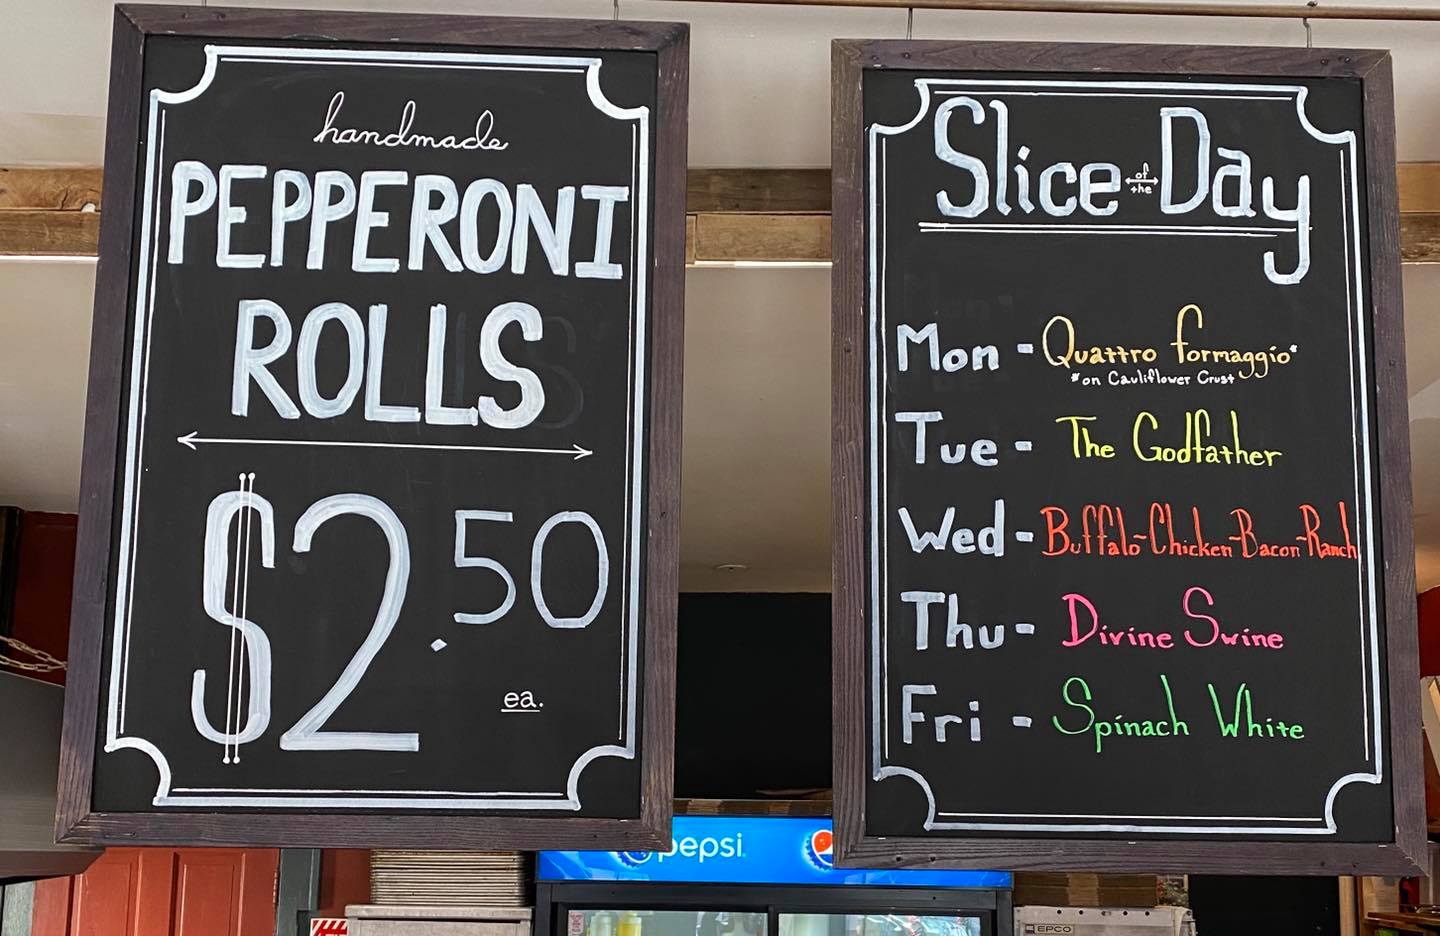 handmade
PEPPERONI
ROLLS
$2.50
ea.
Slice of the Day
Mon - Quattro formaggio*
*on Cauliflower Crust
Tue - The Godfather
Wed - Buffalo-Chicken-Bacon-Ranch
Thu - Divine Swine
Fri - Spinach White
pepsi
EPCO